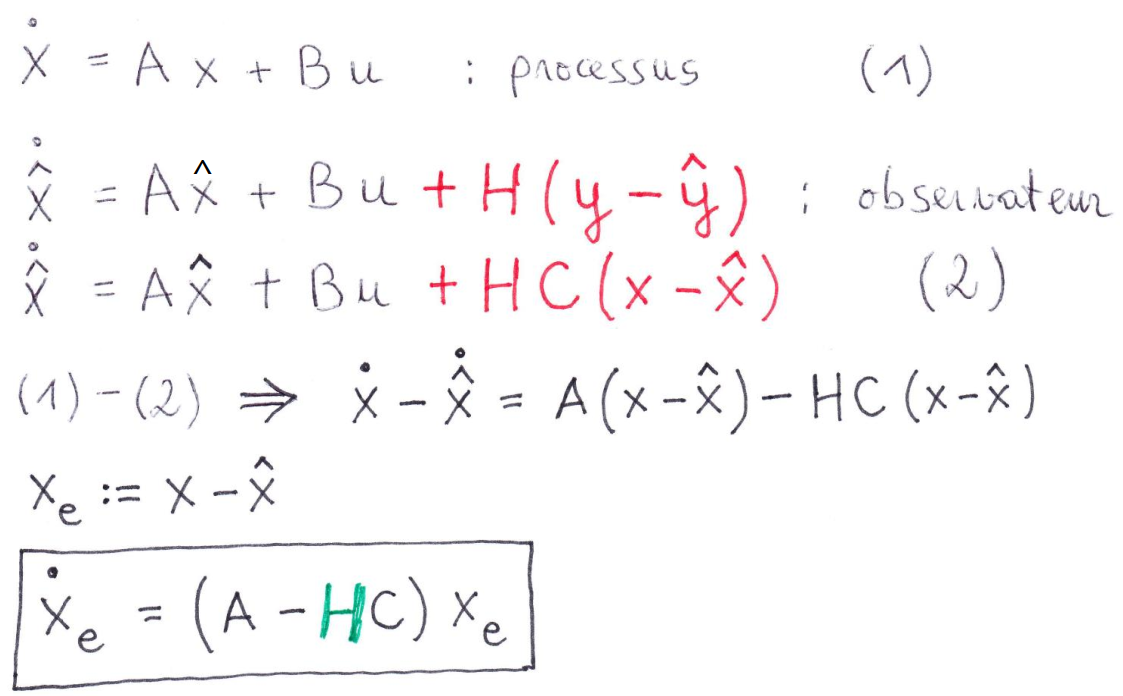 ẋ = A x + B u : processus (1)
x̂̇ = A x̂ + B u + H ( y − ŷ ) : observateur
x̂̇ = A x̂ + B u + H C ( x − x̂ ) (2)
(1) − (2) ⇒ ẋ − x̂̇ = A(x − x̂) − HC (x − x̂)
xₑ := x − x̂
ẋₑ = (A − HC) xₑ